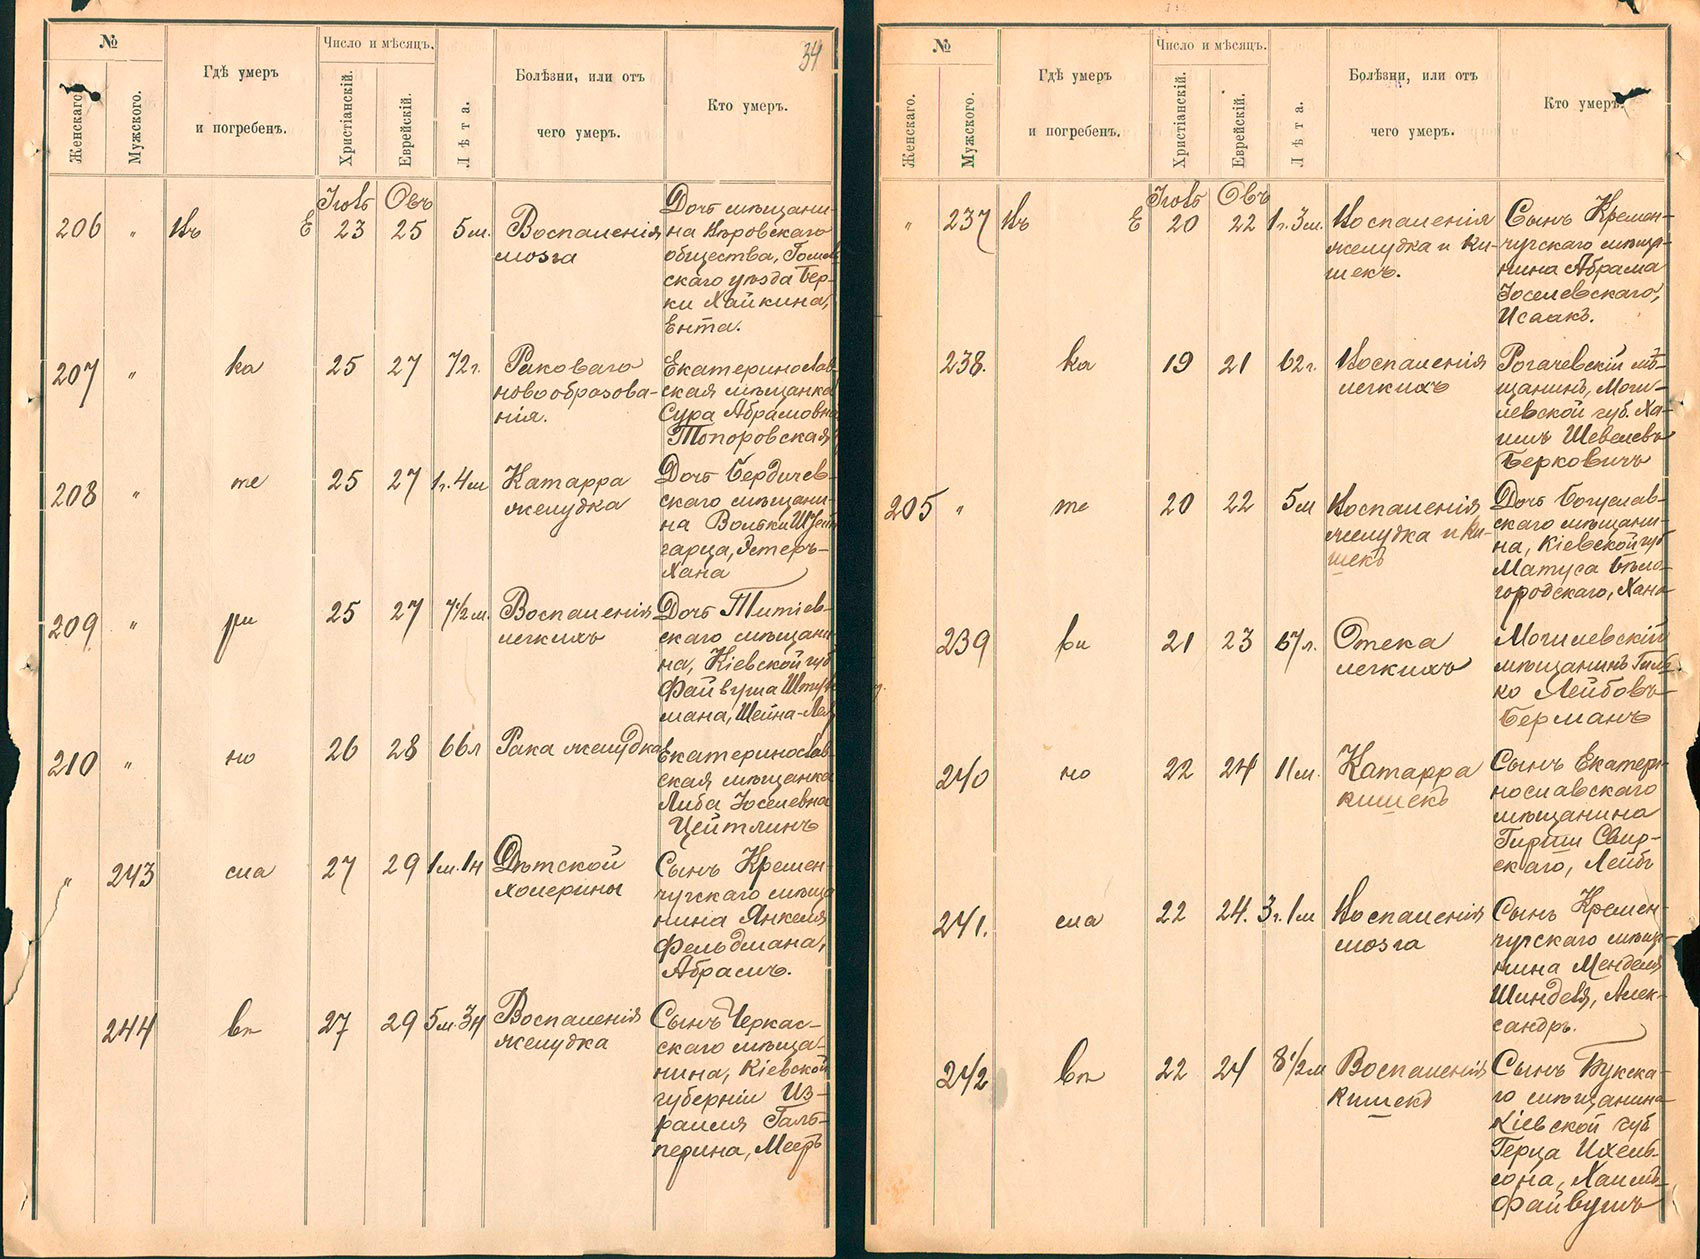 №
Женскаго.
Мужского.
Гдѣ умеръ
и погребенъ.
Число и мѣсяцъ.
Христіанскій.
Еврейскій.
Лѣта.
Болѣзни, или отъ
чего умеръ.
Кто умеръ.
34
Іюль Овъ
206 " Въ Е 23 25 5 м. Воспаленія
мозга
Дочь мѣщани-
на Вѣровскаго
общества, Гомель
скаго уѣзда Бер-
ки Хайкина,
Ента.
207 " ка 25 27 72 г. Раковаго
новообразова-
нія.
Екатеринослав-
ская мѣщанка
Сура Абрамовна
Топоровская
208 " те 25 27 1 г. 4 м Катарра
желудка
Дочь Бердичев-
скаго мѣщани-
на Вольки
гарца, Эстеръ-
Хана
209 " ри 25 27 7½ м. Воспаленія
легкихъ
Дочь Титіев-
скаго мѣщани
на, Кіевской губ
Файвуша
мана, Шейна-Лея
210 " но 26 28 66 л Рака желудка
Екатеринослав-
ская мѣщанка
Либа Іоселевна
Цейтлинъ
" 243 сла 27 29 1 м. 1 н Дѣтской
холерины
Сынъ Кремен-
чугскаго мѣща
нина Янкеля
Фельдмана,
Абрамъ.
244 вп 27 29 5 м. 3 н Воспаленія
желудка
Сынъ Черкас-
скаго мѣща-
нина, Кіевской
губерніи Из-
раиля Галь-
перина, Мееръ
№
Женскаго.
Мужского.
Гдѣ умеръ
и погребенъ.
Число и мѣсяцъ.
Христіанскій.
Еврейскій.
Лѣта.
Болѣзни, или отъ
чего умеръ.
Кто умеръ.
Іюль Овъ
" 237 Въ Е 20 22 1 г. 3 м. Воспаленія
желудка и ки-
шекъ.
Сынъ Кремен-
чугскаго мѣща-
нина Абрама
Іоселевскаго,
Исаакъ.
238. ка 19 21 62 г. Воспаленія
легкихъ
Рогачевскій мѣ-
щанинъ, Моги-
левской губ. Ха-
имъ Шевелевъ
Берковичъ
205 " те 20 22 5 м Воспаленія
желудка и ки-
шекъ
Дочь Богуслав-
скаго мѣщани-
на, Кіевской губ
Матуса Бѣло-
городскаго, Хана
239 ви 21 23 67 л. Отека
легкихъ
Могилевскій
мѣщанинъ
ко Лейбовъ
Берманъ
240 но 22 24 11 м. Катарра
кишекъ
Сынъ Екатери-
нославскаго
мѣщанина
Гирши Свир-
скаго, Лейбъ
241. сла 22 24. 3 г. 1 м Воспаленія
мозга
Сынъ Кремен-
чугскаго мѣща-
нина Менделя
Шинделя, Алек-
сандръ.
242 вп 22 24 8½ м Воспаленія
кишекъ
Сынъ Букска-
го мѣщанина
Кіевской губ
Герца Ихель-
сона, Хаимъ-
Файвушъ